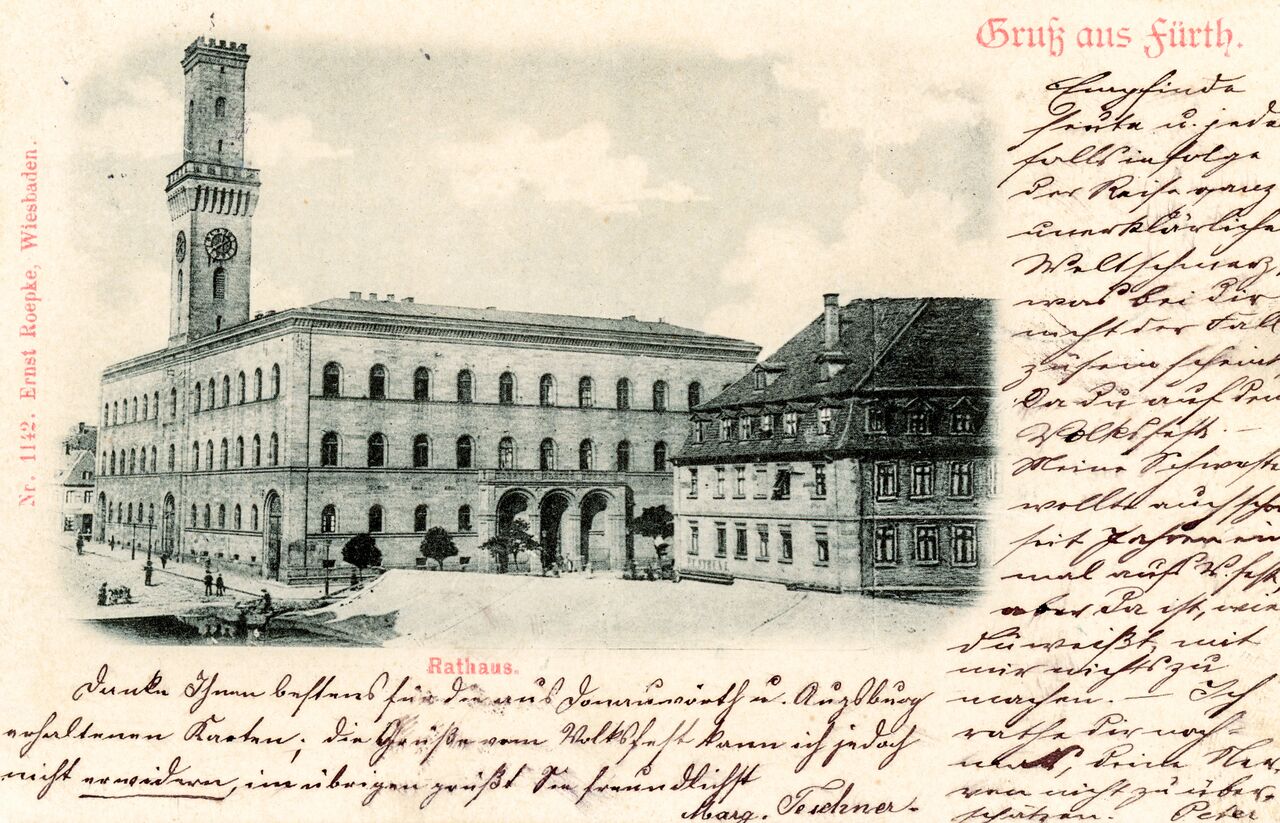 Gruß aus Fürth.
Nr. 1142. Ernst Roepke, Wiesbaden.
Empfinde
heute u. jeden
falls infolge
der Reise ganz
unerklärlichen
Weltschmerz,
was bei dir
nicht der Fall
zu sein scheint
da du auf dem
Volksfest. –
Meine Schwester
wollte auch schon
seit Jahren ein
mal aufs V.fest,
aber da ist, wie
du weißt, mit
mir nichts zu
machen. – Ich
rathe dir noch-
mals, deine Ner
ven nicht zu über-
schätzen. Peter
Rathaus.
Danke Ihnen bestens für die aus Donauwörth u. Augsburg
erhaltenen Karten; die Grüße vom Volksfest kann ich jedoch
nicht erwidern, im übrigen grüßt Sie freundlichst
Marg. Teschner.